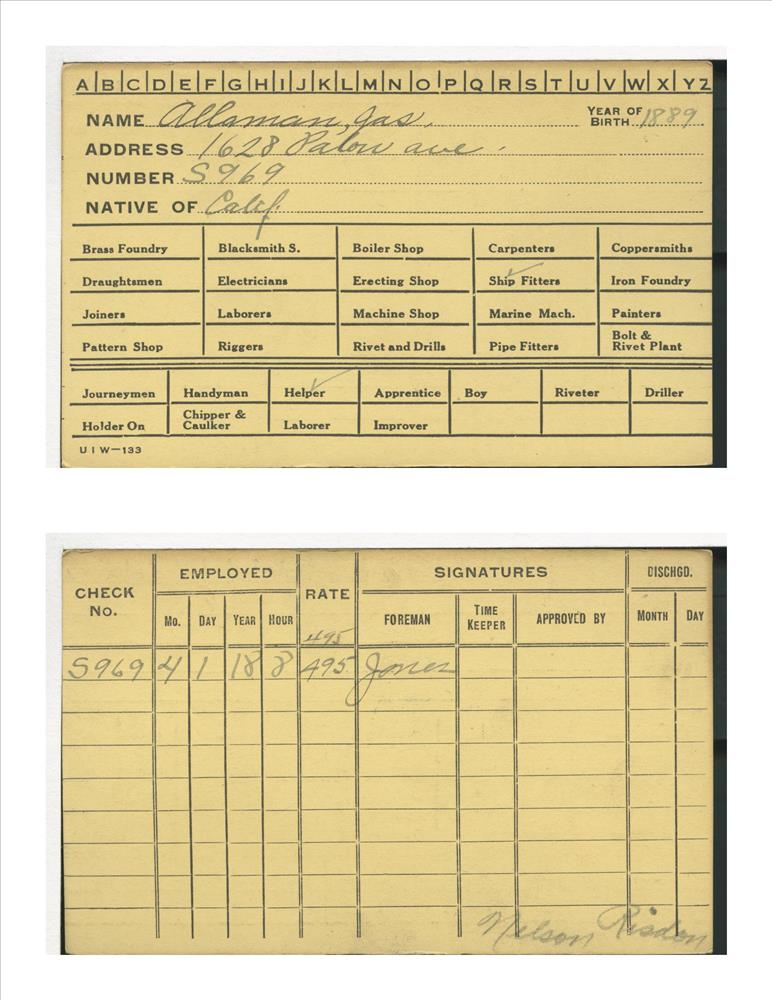 A B C D E F G H I J K L M N O P Q R S T U V W X Y Z
NAME Allaman, Jas. YEAR OF BIRTH 1889
ADDRESS 1628 Palou ave.
NUMBER S969
NATIVE OF Calif.
Brass Foundry Blacksmith S. Boiler Shop Carpenters Coppersmiths
Draughtsmen Electricians Erecting Shop Ship Fitters Iron Foundry
Joiners Laborers Machine Shop Marine Mach. Painters
Pattern Shop Riggers Rivet and Drills Pipe Fitters Bolt & Rivet Plant
Journeymen Handyman Helper Apprentice Boy Riveter Driller
Holder On Chipper & Caulker Laborer Improver
U I W—133
CHECK No. EMPLOYED RATE SIGNATURES DISCHGD.
Mo. DAY YEAR HOUR FOREMAN TIME KEEPER APPROVED BY MONTH DAY
495
S969 4 1 18 8 495 Jones
Nelson Risdon